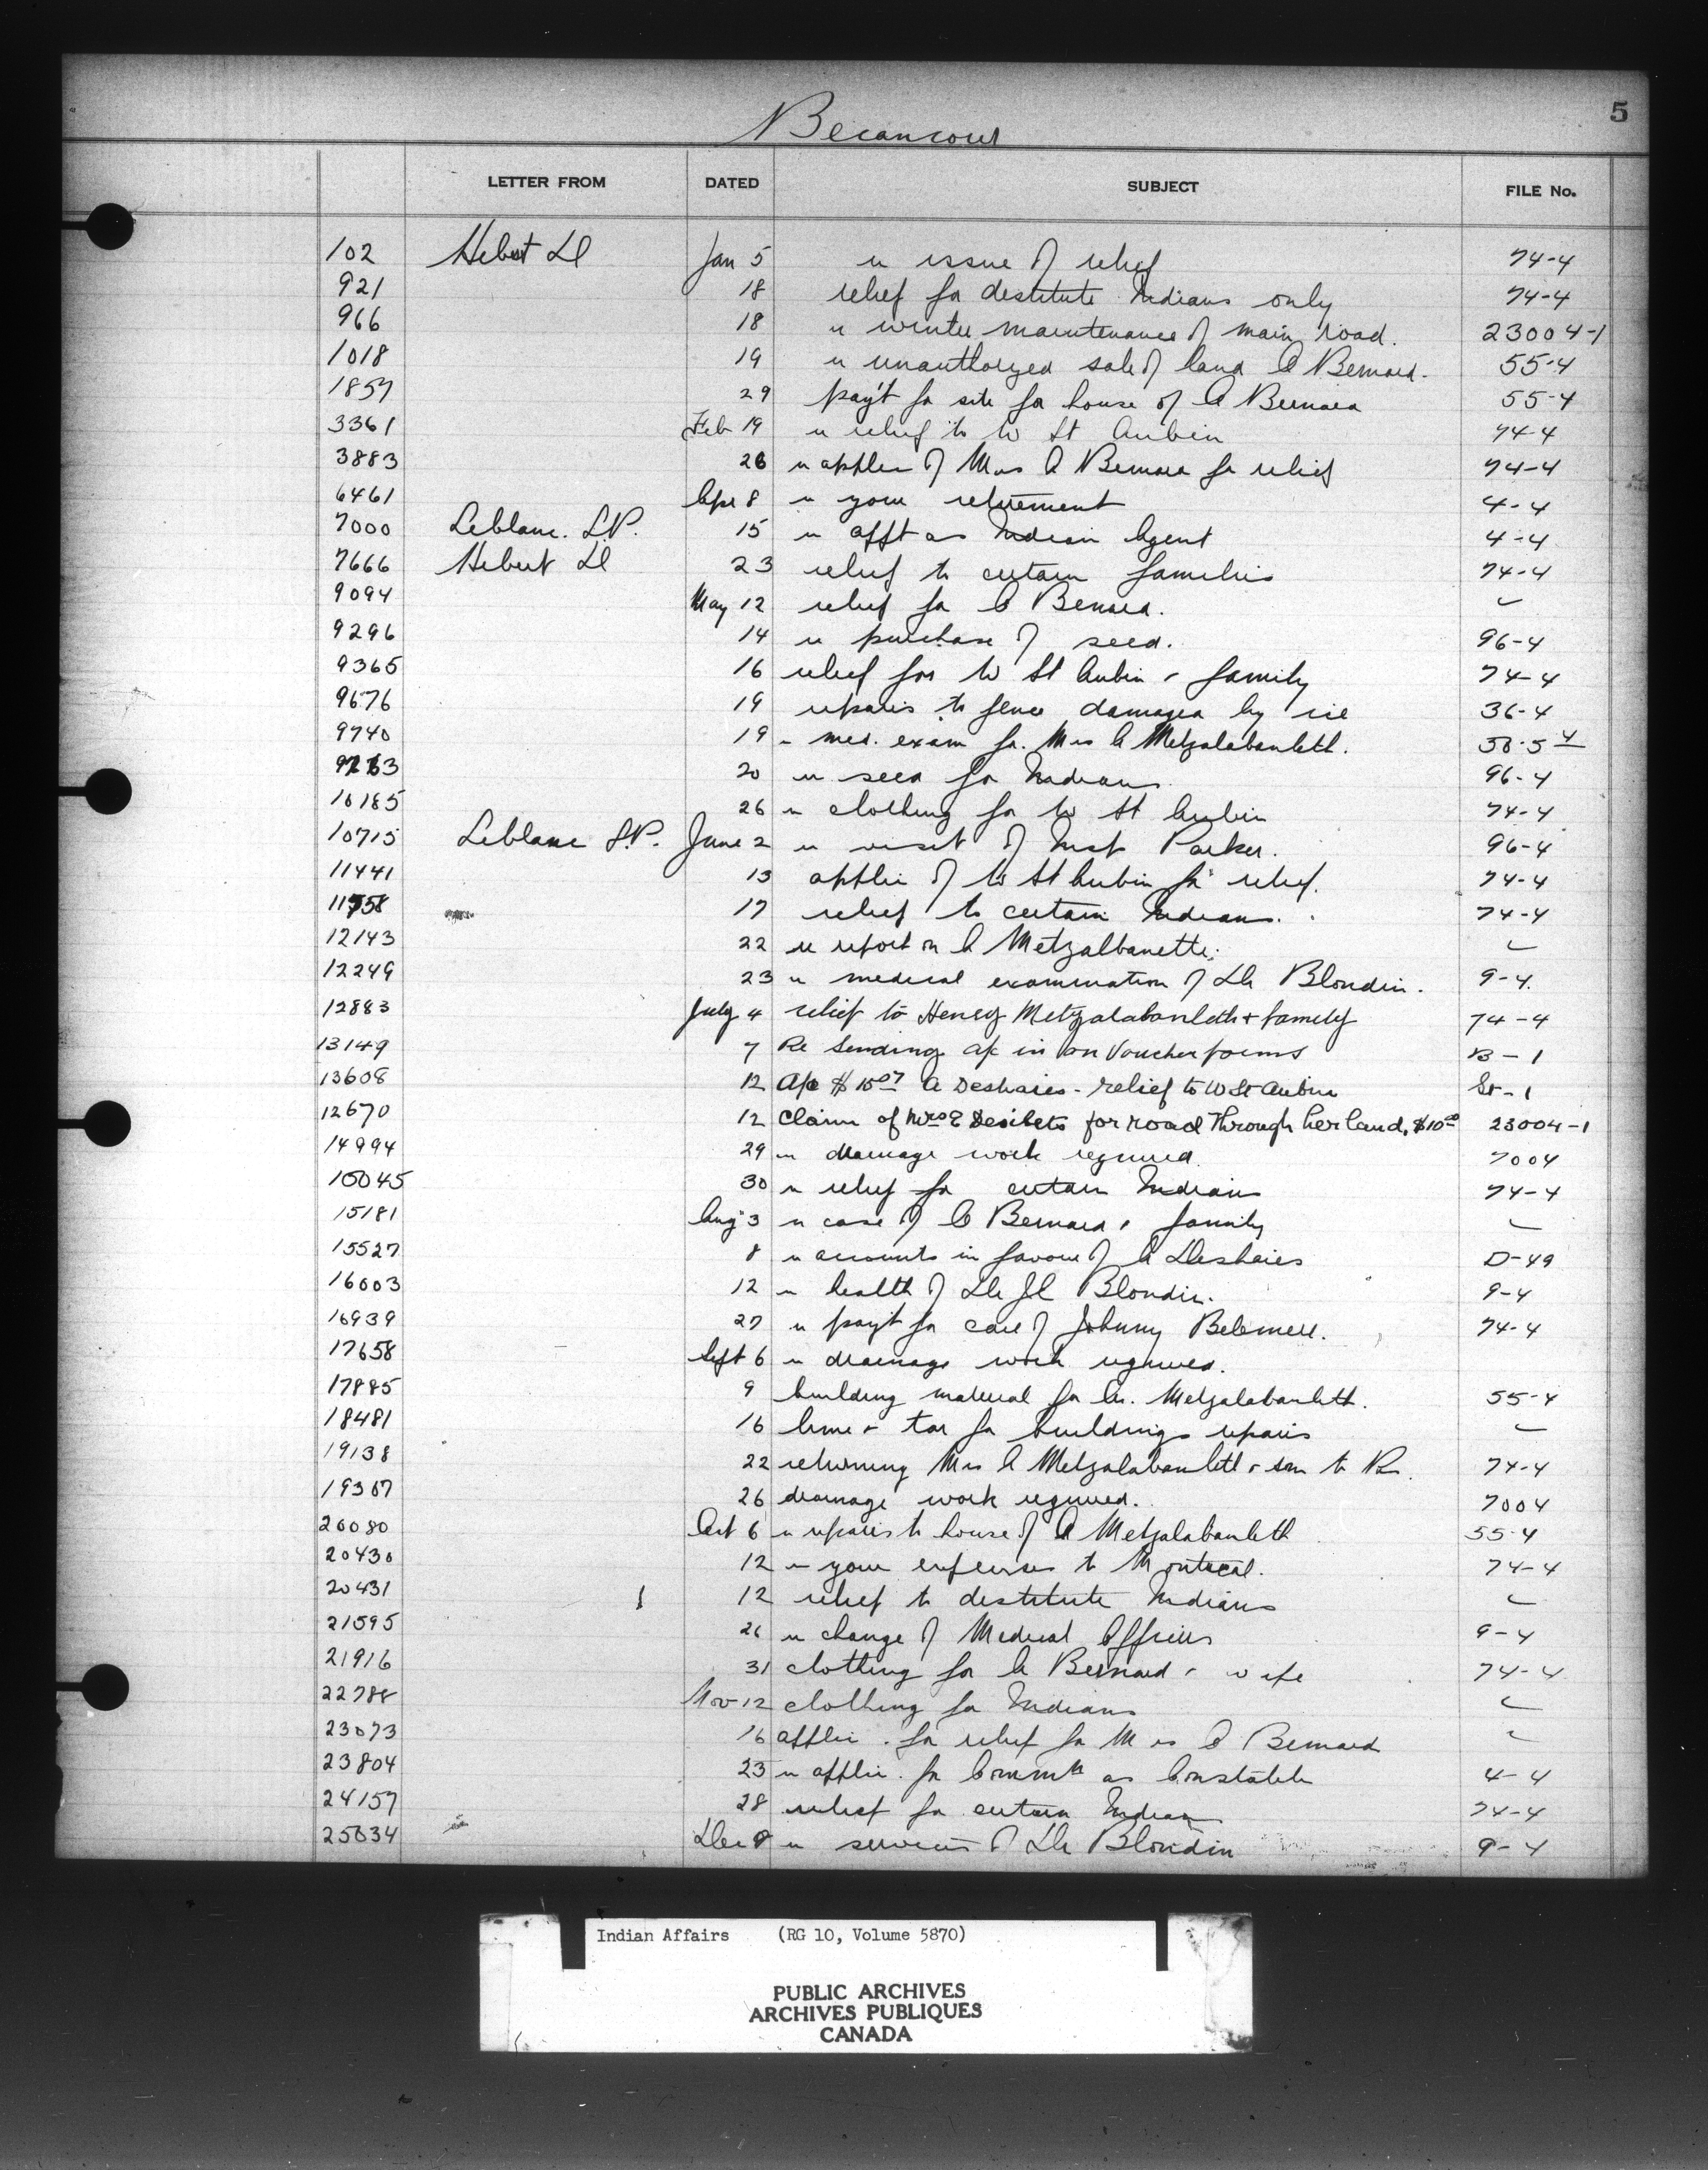 5
Becancour
LETTER FROM DATED SUBJECT FILE No.
102 Hebert D Jan 5 re issue of relief 74-4
921 18 relief for destitute Indians only 74-4
966 18 re winter maintenance of main road. 23004-1
1018 19 re unauthorized sale of land C Bernard. 55-4
1857 29 pay't for site for house of C Bernard 55-4
3361 Feb 19 re relief to W St Aubin 74-4
3883 26 re applic of Mrs A Bernard for relief 74-4
6461 Apr 8 re your retirement 4-4
7000 Leblanc. S.P. 15 re appt as Indian Agent 4-4
7666 Hebert D 23 relief to certain families 74-4
9094 May 12 relief for C Bernard. ✓
9296 14 re purchase of seed. 96-4
9365 16 relief for W St Aubin & family 74-4
9676 19 repairs to fence damaged by ice 36-4
9740 19 re med. exam for Mrs A Metzalabanleth.
20 re seed for Indians 96-4
10185 26 re clothing for W St Aubin 74-4
10715 Leblanc S.P. June 2 re visit of Insp Parker. 96-4
11441 13 applic of W St Aubin for relief. 74-4
11758 17 relief to certain Indians. 74-4
12143 22 re report on A Metzalbanette. ✓
12249 23 re medical examination of Dr Blondin. 9-4.
12883 July 4 relief to Henry Metzalabanleth & family 74-4
13149 7 Re Sending a/c in on Voucher forms B-1
13608 12 A/c $15 07 A Deshaies - relief to W St Aubin St-1
12670 12 Claim of Mrs E Desilets for road through her land, $10 00 23004-1
14994 29 re drainage work required. 7004
15045 30 re relief for certain Indians 74-4
15181 Aug 3 re case of C Bernard & family ✓
15527 8 re accounts in favour of A Deshaies D-49
16003 12 re health of Dr J C Blondin. 9-4
16939 27 re pay't for care of Johnny 74-4
17658 Sept 6 re drainage work required.
17885 9 building material for A. Metzalabanleth. 55-4
18481 16 lime & tar for buildings repairs ✓
19138 22 returning Mrs A Metzalabanleth & son to Res. 74-4
19367 26 drainage work required. 7004
20080 Oct 6 re repairs to house of A Metzalabanleth 55-4
20430 12 re your expenses to Montreal. 74-4
20431 12 relief to destitute Indians ✓
21595 26 re change of Medical Officers 9-4
21916 31 clothing for A Bernard & wife 74-4
22788 Nov 12 clothing for Indians ✓
23073 16 applic. for relief for Mrs C Bernard ✓
23804 23 re applic. for Comm'n as Constable 4-4
24157 28 relief for certain Indians 74-4
25034 Dec 8 re services of Dr Blondin 9-4
Indian Affairs (RG 10, Volume 5870)
PUBLIC ARCHIVES
ARCHIVES PUBLIQUES
CANADA